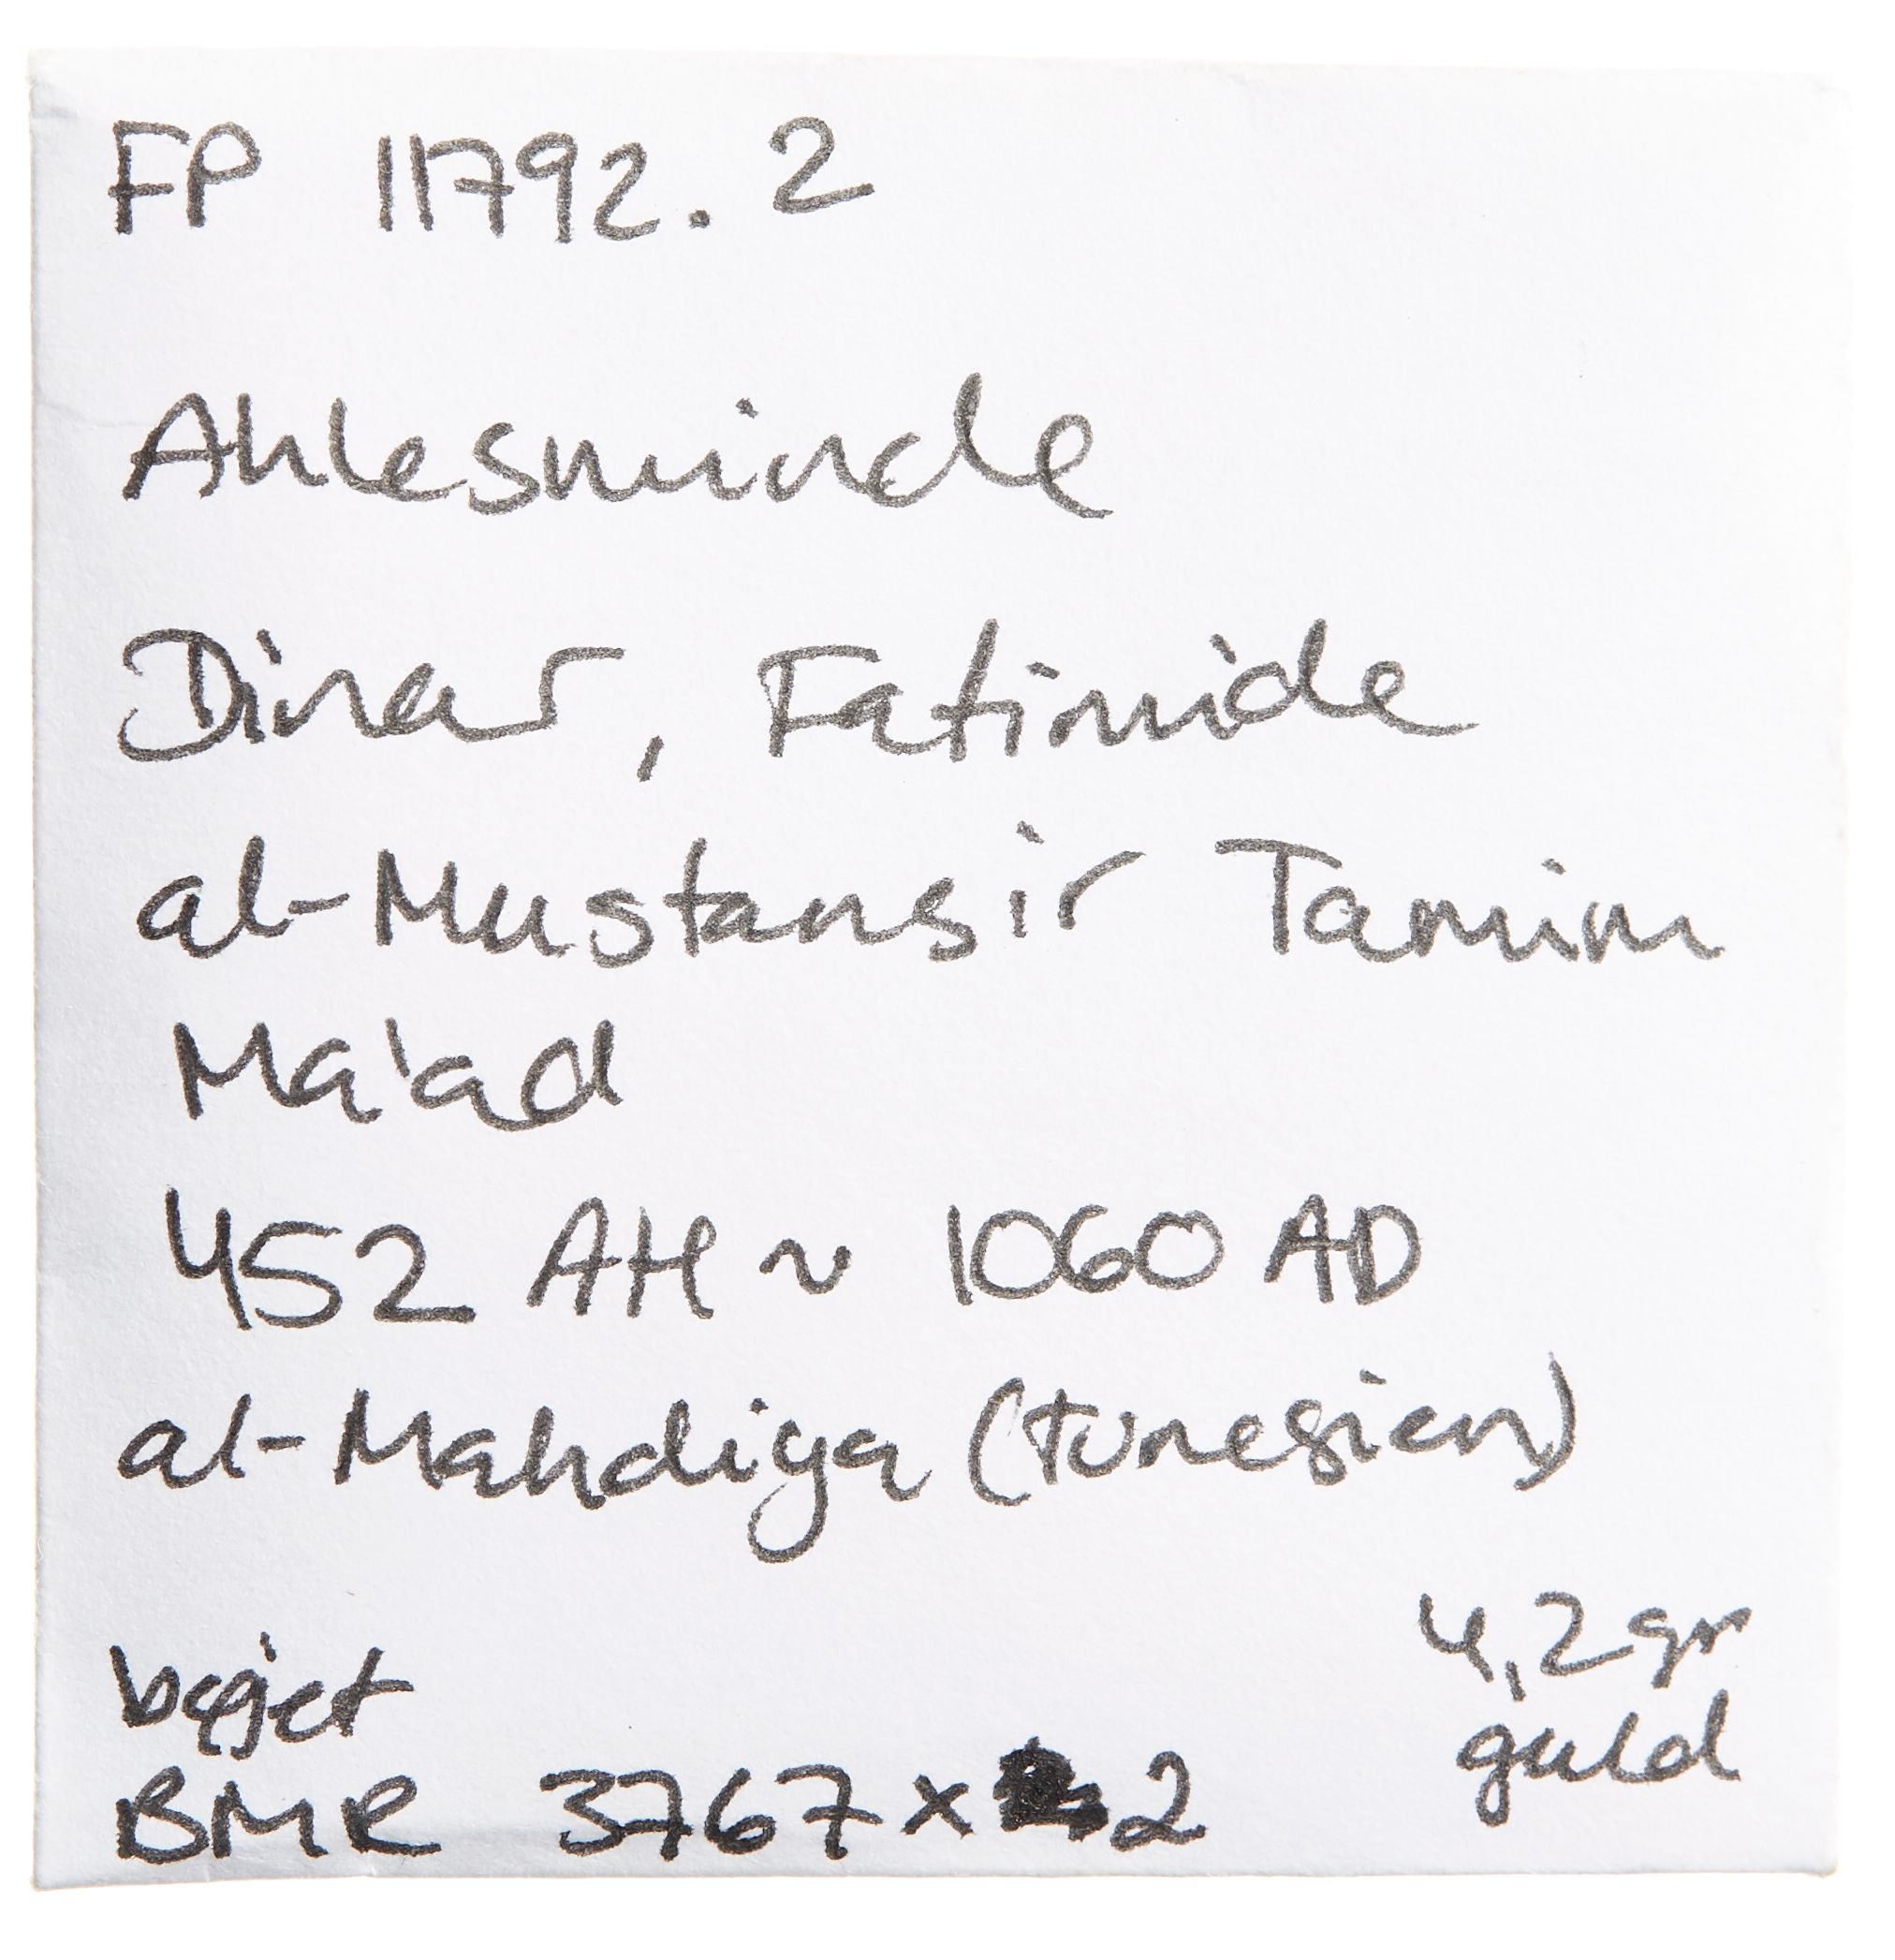 FP 11792.2
Ahlesminde
Dinar, Fatimide
al-Mustansir Tamim
Ma'ad
452 AH ~ 1060 AD
al-Mahdiya (Tunesien)
4,2 gr
guld
bøjet
BMR 3767 x 2